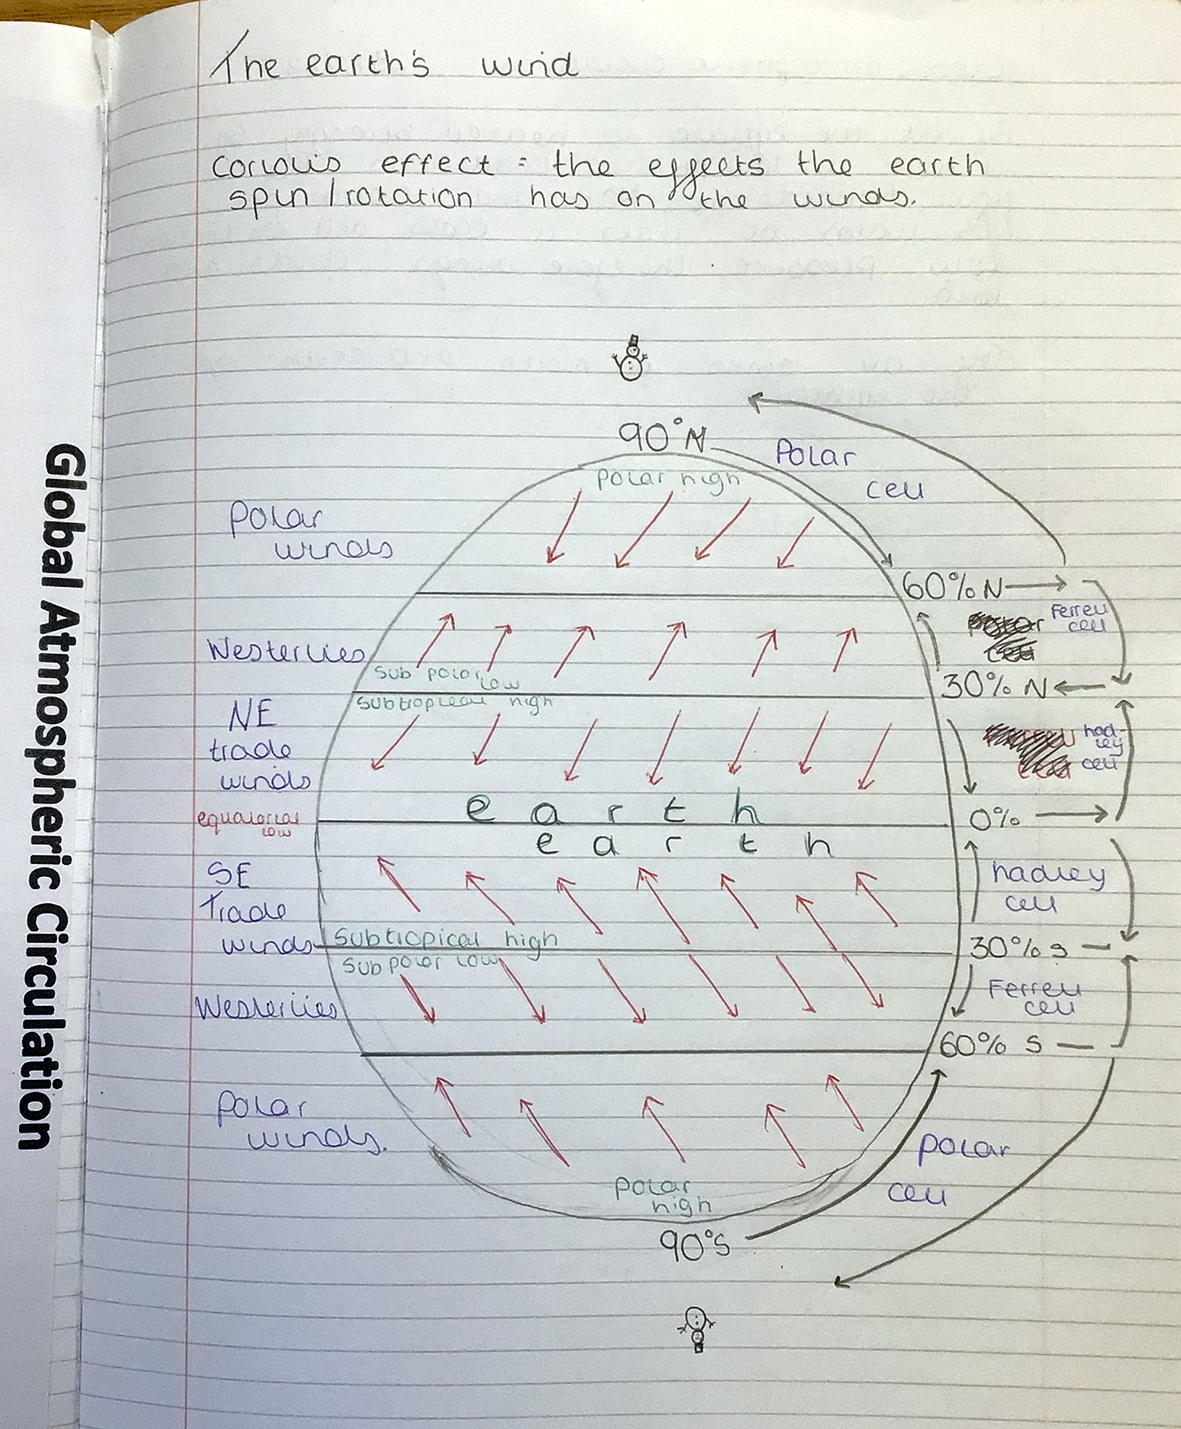 The earth's wind
coriolis effect : the effects the earth
spin / rotation has on the winds.
Global Atmospheric Circulation
90°N
Polar
cell
Polar high
Polar
winds
60% N
Ferrell
cell
Westerlies
Sub polar low
30% N
Subtropical high
NE
trade
winds
had-
ley
cell
earth
equatorial
low
0%
earth
SE
Trade
winds
hadley
cell
Subtropical high
30% s
Sub polar low
Westerlies
Ferrell
cell
60% s
Polar
winds.
Polar
cell
Polar
high
90°s